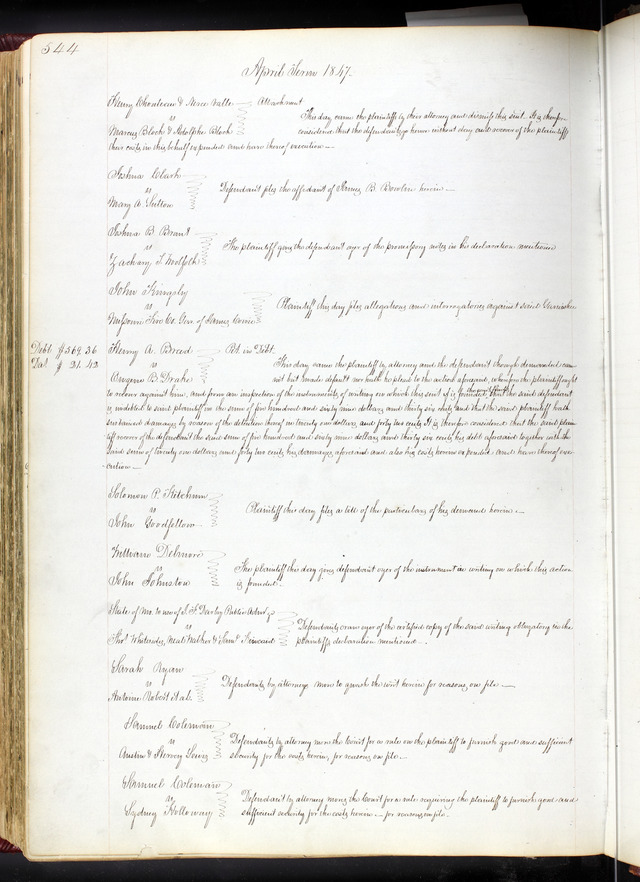 544
April Term 1847.
Henry Chouteau & Neree Valle Attachment
vs
This day came the plaintiffs by their attorney and dismiss this suit. It is therefore
Marcus Block & Adolphe Block
considered that the defendants go hence without day and recover of the plaintiffs
their costs in this behalf expended and have thereof execution.—
Joshua Clark
vs
Defendant files the affidavit of James B. Bowlin herein.—
Mary A. Sutton
Joshua B. Brant
vs
The plaintiff gives the defendant oyer of the promissory notes in his declaration mentioned
Zachary T.
John Kingsly
vs
Plaintiff this day files allegations and interrogatories against said Garnishee
Missouri Ins Co. Gar. of James
Debt $569.36
Henry A. Breed Pet. in Debt.
Dal $ 21.42
vs
This day came the plaintiff by attorney and the defendant though demanded came
B. Drake
not but made default nor hath he plead to the action aforesaid, wherefore the plaintiff ought
to recover against him, and from an inspection of the instruments of writing on which this suit is founded, that the said defendant
is indebted to said plaintiff in the sum of five hundred and sixty nine dollars and thirty six cents and that the said plaintiff hath
sustained damages by reason of the detention thereof in twenty one dollars and forty two cents It is therefore considered that the said plain-
tiff recover of the defendant the said sum of five hundred and sixty nine dollars and thirty six cents his debt aforesaid together with the
said sum of twenty one dollars and forty two cents his damages aforesaid and also his costs herein expended and have thereof exe-
cution—
Solomon P. Ketchum
vs
Plaintiff this day files a bill of the particulars of his demand herein.—
John Goodfellow
William Delmore
vs
The plaintiff this day gives defendant oyer of the instrument in writing on which this action
John Johnston
is founded.
State of Mo. to use of Darby Public Admr.
vs
Defendants crave oyer of the certified copy of the said writing obligatory in the
Thos. Whiteridge, Walker & Saml.
plaintiffs declaration mentioned—.
Sarah Ryan
vs
Defendants by attorneys move to quash the writ herein for reasons on file.—
Antoine Robert et als.
Samuel Coleman
vs
Defendants by attorney move the Court for a rule on the plaintiff to furnish good and sufficient
Austin & Harvey
security for the costs herein, for reasons on file.—
Samuel Coleman
vs
Defendant by attorney moves the Court for a rule requiring the plaintiff to furnish good and
Sydney Holloway
sufficient security for the costs herein — for reasons on file.—